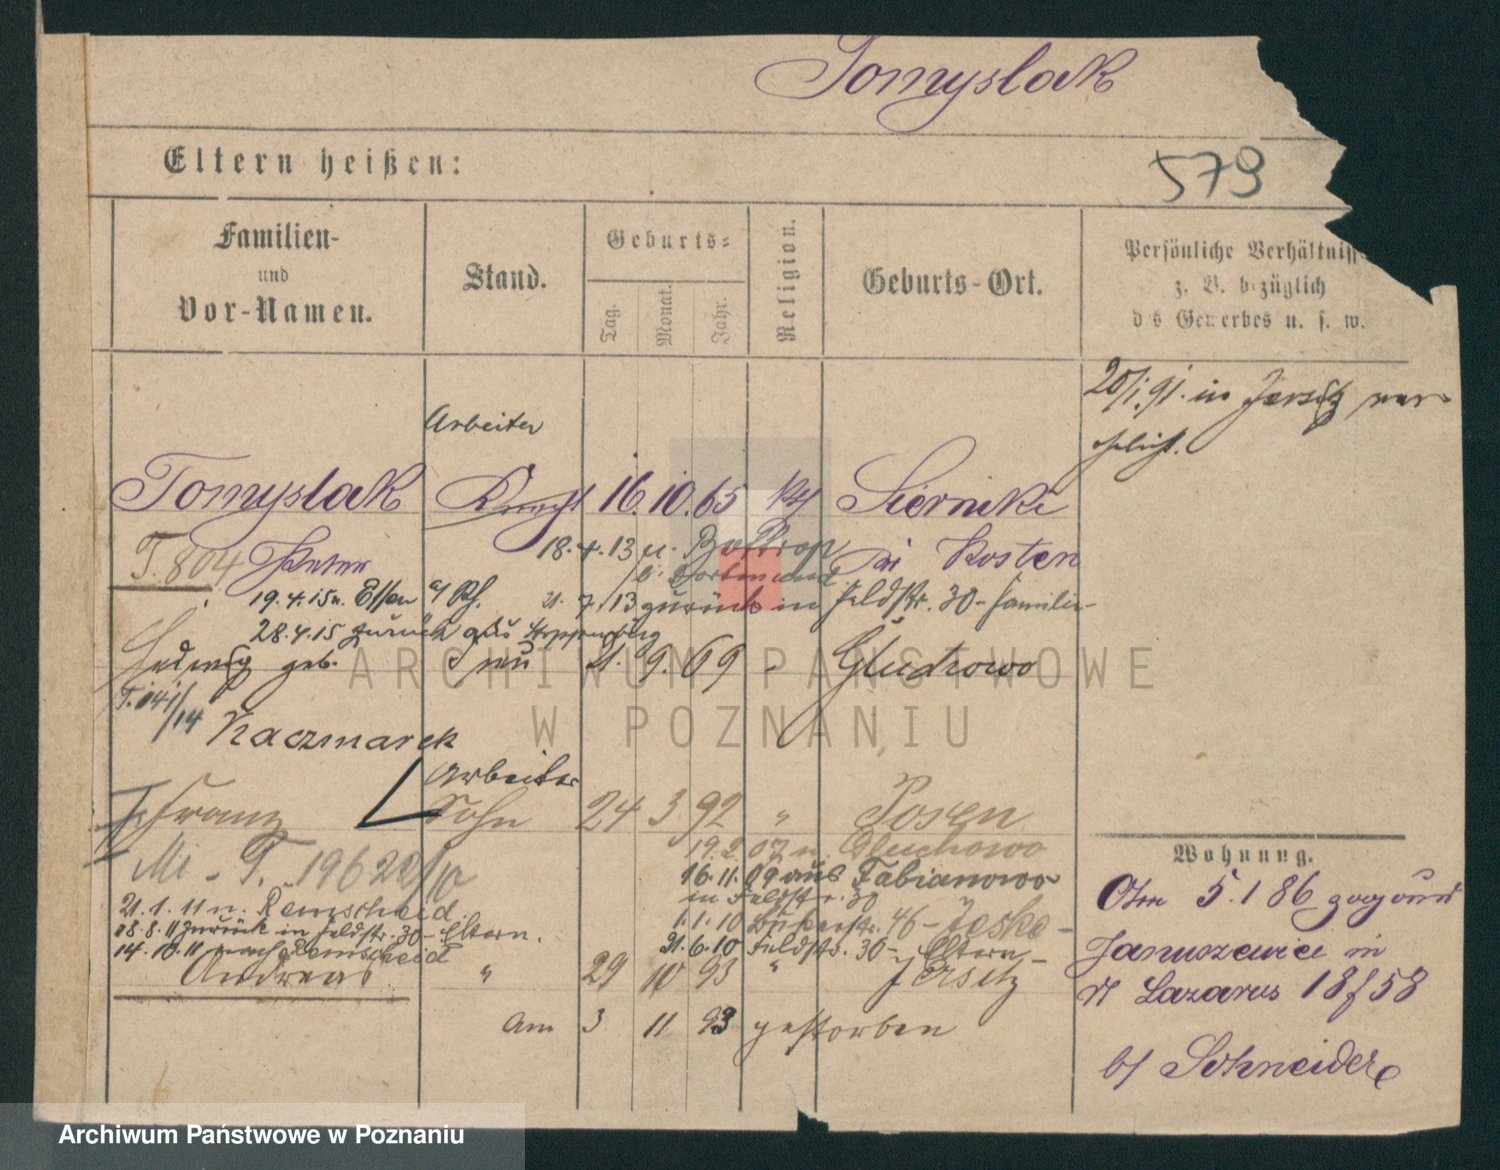 Tomyslak
579
Eltern heißen:
Familien-
und
Vor-Namen.
Stand.
Geburts-
Tag.
Monat.
Jahr.
Religion.
Geburts-Ort.
Persönliche Verhältniss
z. B. bezüglich
des Gewerbes u. s. w.
20/1. 91. in Jersitz ver-
ehelicht.
Arbeiter
Tomyslak 16. 10. 65 kth Siernicki
T. 804 Peter 18.4.13 u. Bottrop bei Kosten
b. Dortmund
19.4.15 n. Essen a/Rh. 21. 7. 13 zurück in Feldstr. 30 - Familie-
28.4.15 zurück aus
Hedwig geb. Frau 21. 9. 69 - Gluchowo
Kaczmarek
Arbeiter
Franz Sohn 24 3 92 " Posen
Mi - T. 196
19.2.07 n. Gluchowo
16.11.09 aus Fabianowo
in Feldstr. 30
1.1.10 46 - Jeske -
21.6.10 Feldstr. 30 - Eltern -
21.1.11 n. Remscheid.
18.8.11 zurück in Feldstr. 30 - Eltern.
14.10.11 nach Remscheid
Andreas " 29 10 93 " Jersitz
am 3 11 93 gestorben
Wohnung.
5. 1 86 zugezogen
Januszewice in
St Lazarus 18 f 58
b/ Schneider
ARCHIWUM PAŃSTWOWE
W POZNANIU
Archiwum Państwowe w Poznaniu